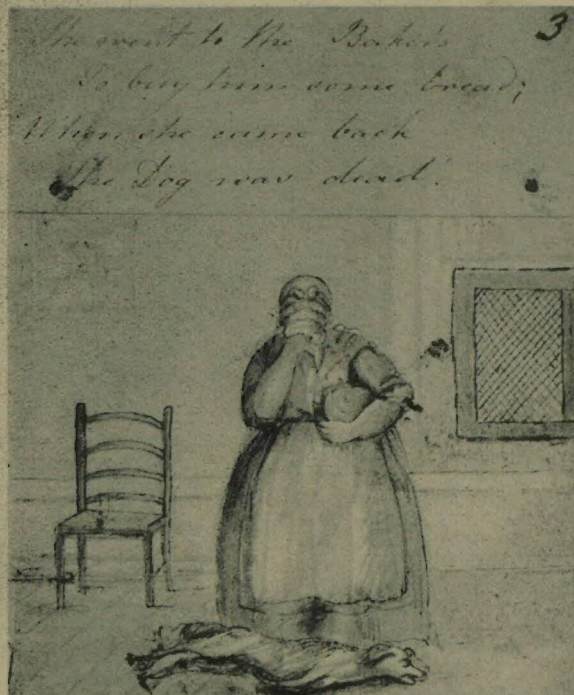 3
She went to the Baker's
To buy him some bread;
When she came back
The Dog was dead.